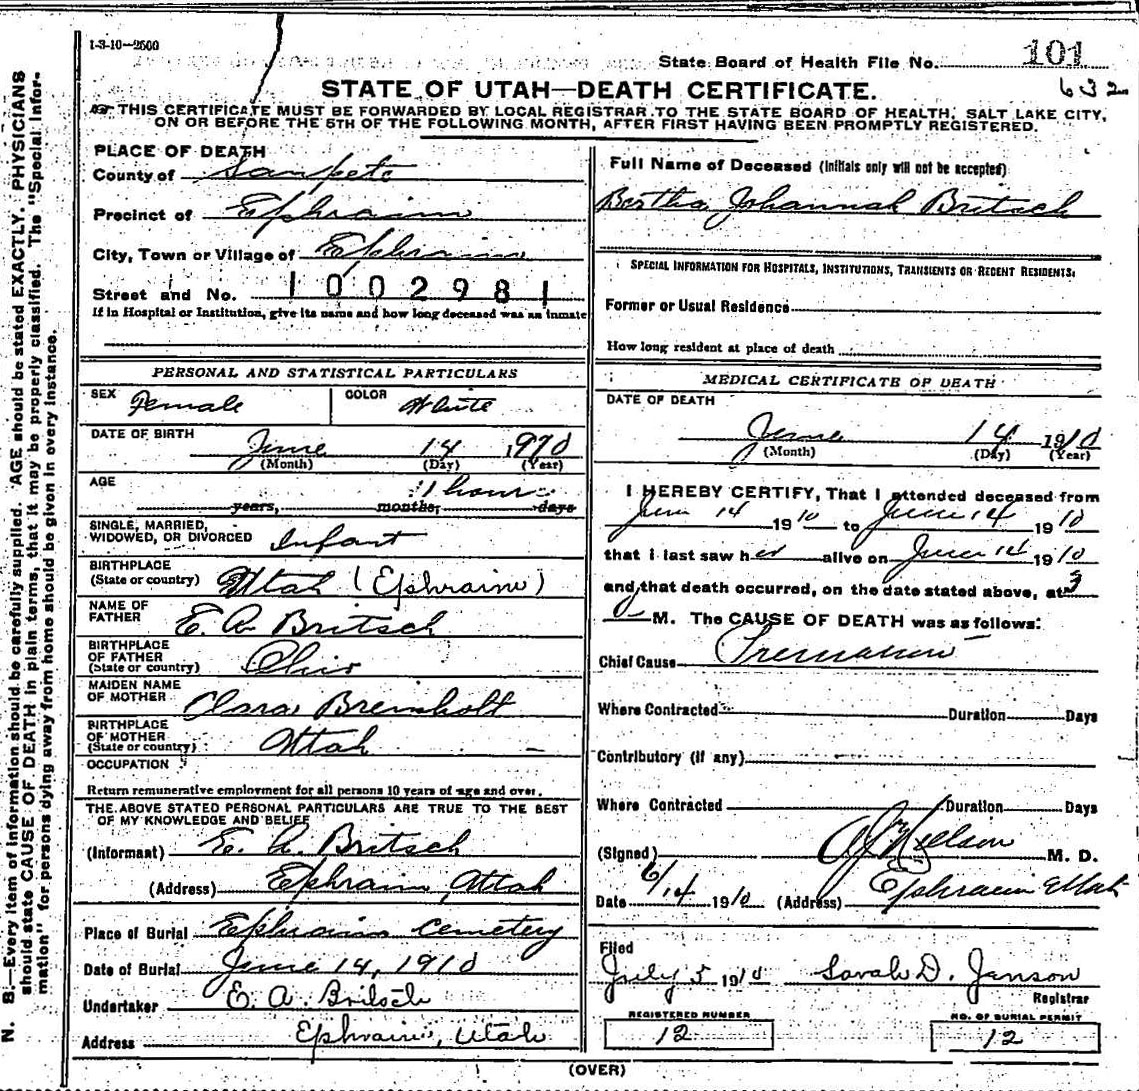 1-3-10—2500
State Board of Health File No. 101
632
STATE OF UTAH—DEATH CERTIFICATE.
THIS CERTIFICATE MUST BE FORWARDED BY LOCAL REGISTRAR TO THE STATE BOARD OF HEALTH, SALT LAKE CITY,
ON OR BEFORE THE 5TH OF THE FOLLOWING MONTH, AFTER FIRST HAVING BEEN PROMPTLY REGISTERED.
PLACE OF DEATH
County of Sanpete
Precinct of Ephraim
City, Town or Village of Ephraim
Street and No. 1002981
If in Hospital or Institution, give its name and how long deceased was an inmate
Full Name of Deceased (Initials only will not be accepted)
Bertha Johannah Britsch
SPECIAL INFORMATION FOR HOSPITALS, INSTITUTIONS, TRANSIENTS OR RECENT RESIDENTS:
Former or Usual Residence
How long resident at place of death
PERSONAL AND STATISTICAL PARTICULARS
SEX Female COLOR White
DATE OF BIRTH June 14 1910
(Month) (Day) (Year)
AGE 1 hour
years, months, days
SINGLE, MARRIED,
WIDOWED, OR DIVORCED Infant
BIRTHPLACE
(State or country) Utah (Ephraim)
NAME OF
FATHER E. A. Britsch
BIRTHPLACE
OF FATHER
(State or country) Ohio
MAIDEN NAME
OF MOTHER Clara Breinholt
BIRTHPLACE
OF MOTHER
(State or country) Utah
OCCUPATION
Return remunerative employment for all persons 10 years of age and over.
THE ABOVE STATED PERSONAL PARTICULARS ARE TRUE TO THE BEST
OF MY KNOWLEDGE AND BELIEF
(Informant) E. A. Britsch
(Address) Ephraim, Utah
Place of Burial Ephraim Cemetery
Date of Burial June 14, 1910
Undertaker E. A. Britsch
Address Ephraim, Utah
MEDICAL CERTIFICATE OF DEATH
DATE OF DEATH
June 14 1910
(Month) (Day) (Year)
I HEREBY CERTIFY, That I attended deceased from
June 14 1910 to June 14 1910
that I last saw her alive on June 14 1910
and that death occurred, on the date stated above, at 3
M. The CAUSE OF DEATH was as follows:
Chief Cause
Where Contracted Duration Days
Contributory (if any)
Where Contracted Duration Days
(Signed) A J Nielson M. D.
Date 6/14 1910 (Address) Ephraim Utah
Filed
July 5 1910 Sarah D. Janson
Registrar
REGISTERED NUMBER
12
NO. OF BURIAL PERMIT
12
(OVER)
N. B.—Every item of information should be carefully supplied. AGE should be stated EXACTLY. PHYSICIANS
should state CAUSE OF DEATH in plain terms, that it may be properly classified. The "Special Infor-
mation" for persons dying away from home should be given in every instance.